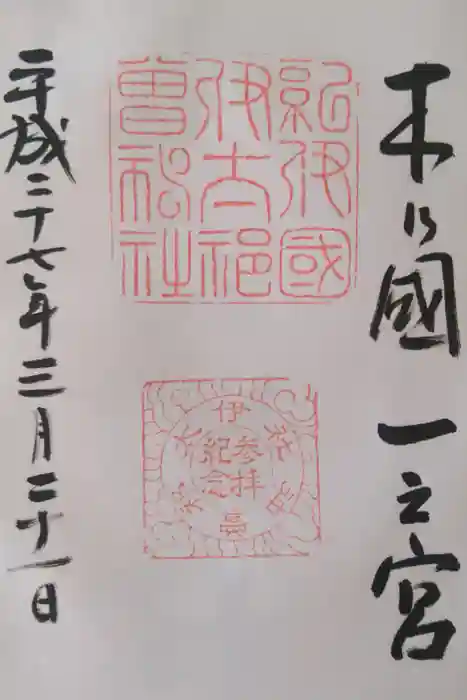 木乃國 一之宮
紀伊國
伊太祁
曾神社
伊太祁曽神社
参拝
紀念
平成二十七年三月二十一日